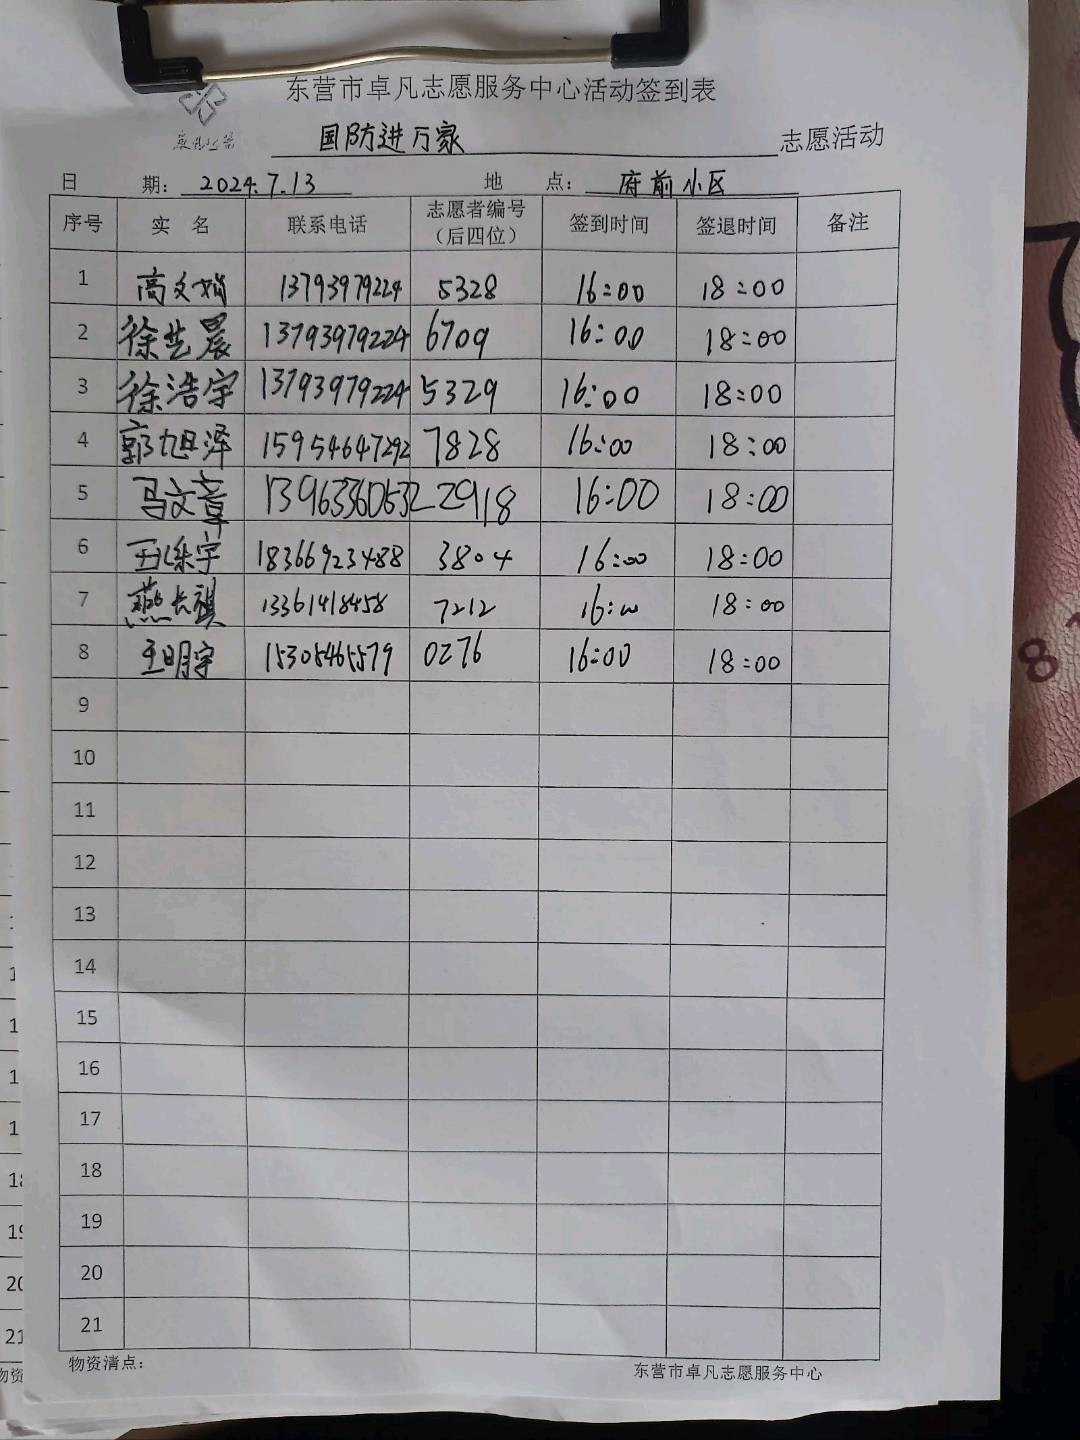 东营市卓凡志愿服务中心活动签到表
国防进万家 志愿活动
日 期: 2024.7.13 地 点: 府前小区
序号 实 名 联系电话 志愿者编号（后四位） 签到时间 签退时间 备注
1 高文娟 13793979224 5328 16:00 18:00
2 徐艺晨 13793979224 6709 16:00 18:00
3 徐浩宇 13793979224 5329 16:00 18:00
4 郭旭泽 15954647292 7828 16:00 18:00
5 马文章 13963360532 2918 16:00 18:00
6 18366923488 3804 16:00 18:00
7 燕长祺 13361418458 7212 16:00 18:00
8 王明宇 15305465579 0276 16:00 18:00
9
10
11
12
13
14
15
16
17
18
19
20
21
物资清点: 东营市卓凡志愿服务中心